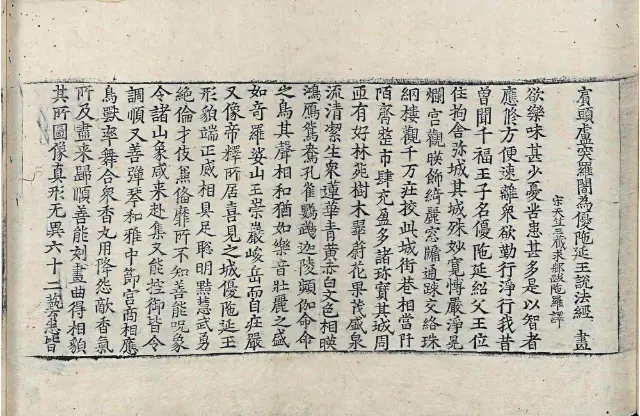 賓頭盧突羅闍為優陁延王說法經 盡
宋天竺三藏求那跋陁羅譯
欲樂味甚少憂苦患甚多是以智者
應脩方便速離衆欲勤行淨行我昔
曾聞千福王子名優陁延紹父王位
住拘舍弥城其城殊妙寛愽嚴淨晃
爛宮觀暎飾綺麗窓牖通踈交絡珠
網樓觀千万莊挍此城街巷相當阡
陌齋整市肆充盈多諸珎寳其城周
迊有好林苑樹木翠蔚花果茂盛泉
流清潔生衆蓮華青黄赤白文色相暎
鴻鴈鴛鴦孔雀鸚鵡迦陵頻伽命命
之鳥其聲相和猶如樂音壯麗之盛
如奇羅娑山王崇巖峻岳而自莊嚴
又像帝釋所居喜見之城優陁延王
形貌端正威相具足聡明黠慧武勇
絶倫才伎兼俻靡所不知善能呪象
令諸山象咸来赴集又能控御皆令
調順又善彈琴和雅中節宮商相應
鳥獸率舞合衆香丸用降怨敵香氣
所及盡来歸順善能刻畫曲得相貌
其所圖像真形无異六十二藝悉皆